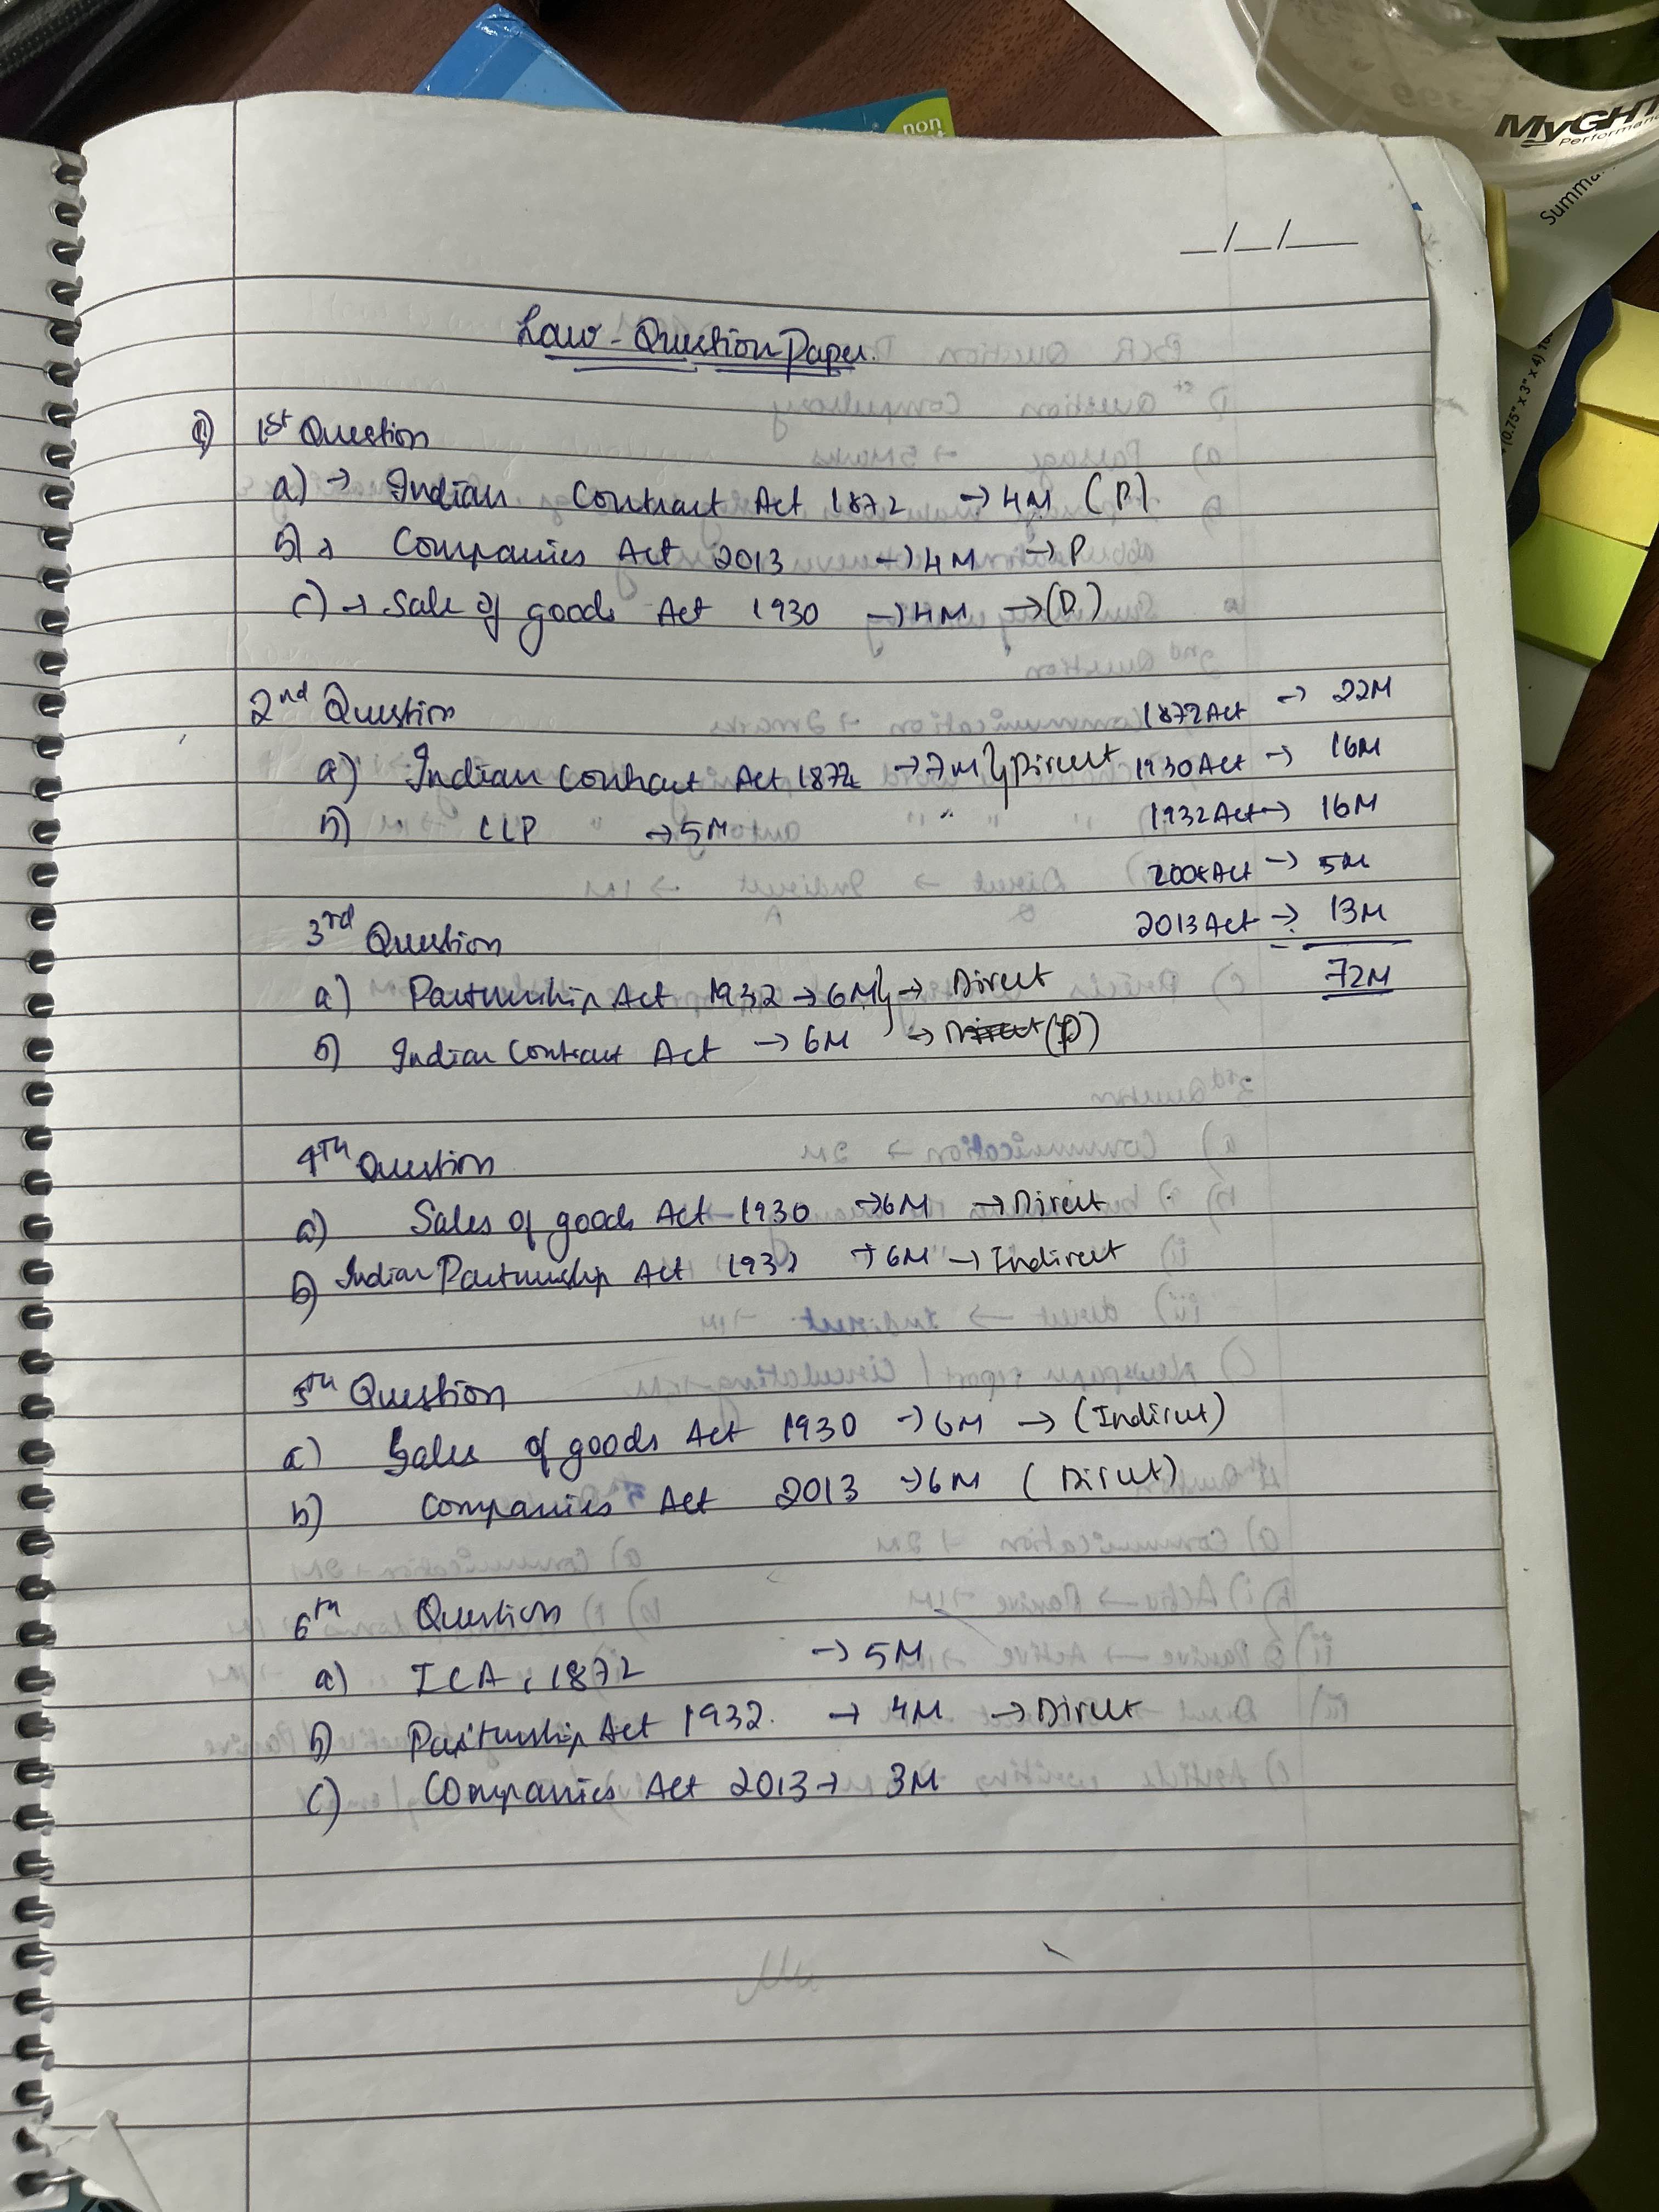 non
MyGHT
Performan
Summa
(0.75" x 3" x 4)
__/__/____
Law - Question Paper.
① 1st Question
a) → Indian Contract Act 1872 → 4M (P)
b) → Companies Act 2013 → 4M → P
c) → Sale of goods Act 1930 → 4M → (D)
2nd Question
a) Indian Contract Act 1872 → 7M } Direct
b) LLP → 5M
1872 Act → 22M
1930 Act → 16M
1932 Act → 16M
2008 Act → 5M
2013 Act → 13M
72M
3rd Question
a) Partnership Act 1932 → 6M → Direct
b) Indian Contract Act → 6M → Direct (P)
4TH Question
a) Sales of goods Act - 1930 → 6M → Direct
b) Indian Partnership Act 1932 → 6M → Indirect
5TH Question
a) Sales of goods Act 1930 → 6M → (Indirect)
b) Companies Act 2013 → 6M (Direct)
6th Question
a) ICA, 1872 → 5M
b) Partnership Act 1932. → 4M → Direct
c) Companies Act 2013 → 3M